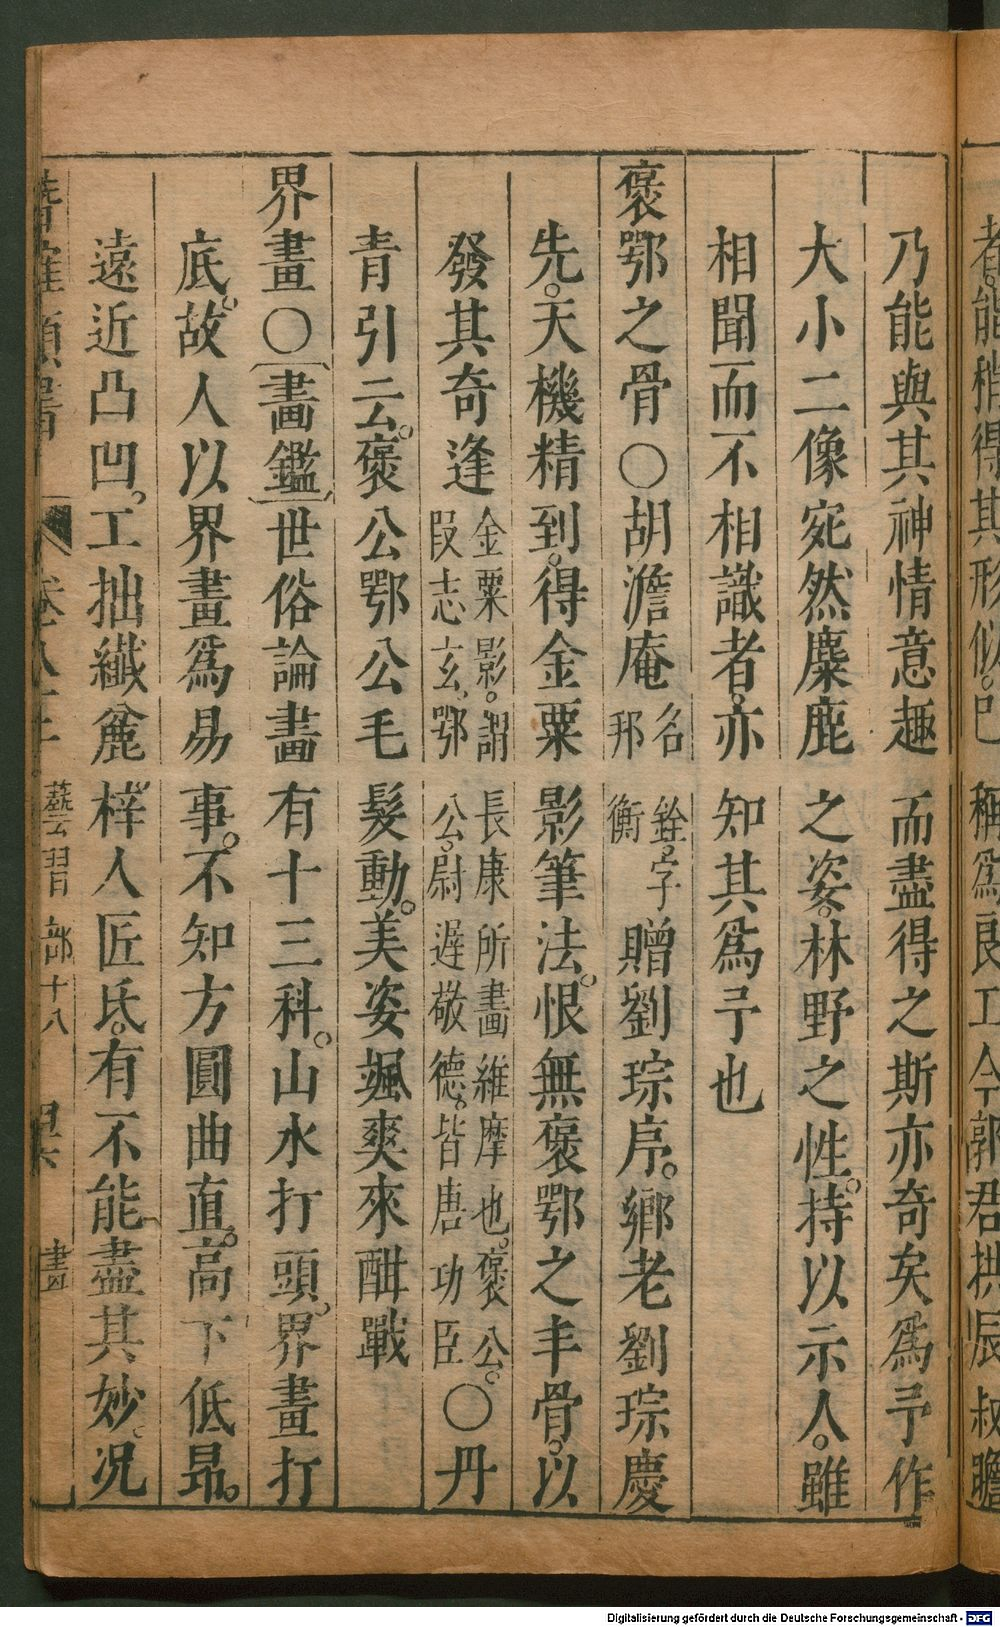 者。能稍得其形似。已稱爲良工。今郭君拱辰叔瞻
乃能與其神情意趣而盡得之斯亦奇矣爲予作
大小二像宛然麋鹿之姿。林野之性。持以示人。雖
相聞而不相識者。亦知其爲予也
褒鄂之骨○胡澹庵名銓。字邦衡贈劉琮序。鄉老劉琮慶
先。天機精到。得金粟影筆法。恨無褒鄂之丰骨。以
發其奇逢金粟影。謂長康所畫維摩也。褒公。段志玄。鄂公。尉遲敬德。皆唐功臣○丹
青引云。褒公鄂公毛髮動。美姿颯爽來酣戰
界畫○畫鑑世俗論畫有十三科。山水打頭。界畫打
底。故人以界畫爲易事。不知方圓曲直。高下低昂。
遠近凸凹。工拙纖麄。梓人匠氏。有不能盡其妙。況
卷八十
藝習部十八
畫
Digitalisierung gefördert durch die Deutsche Forschungsgemeinschaft - DFG